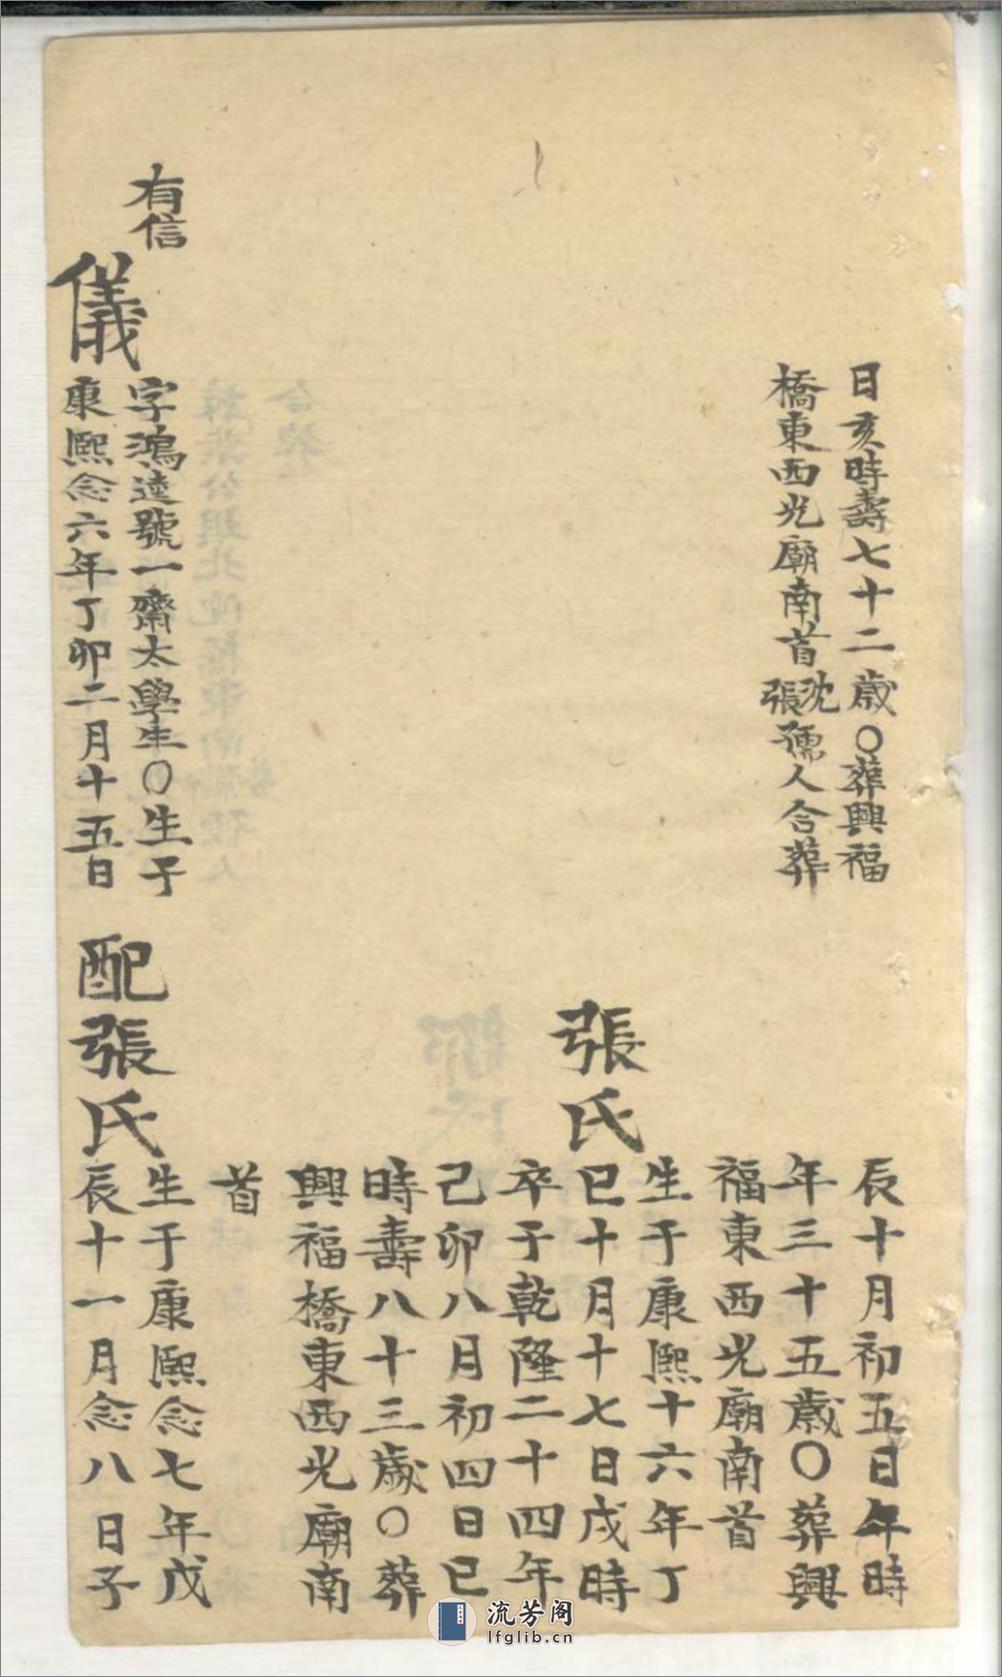 日亥時壽七十二歲〇葬興福
橋東西光廟南首沈張孺人合葬
辰十月初五日午時
年三十五歲〇葬興
福東西光廟南首
張氏
生于康熙十六年丁
巳十月十七日戌時
卒于乾隆二十四年
己卯八月初四日巳
時壽八十三歲〇葬
興福橋東西光廟南
首
有信
儀
字鴻逵號一齋太學生〇生于
康熙念六年丁卯二月十五日
配張氏
生于康熙念七年戊
辰十一月念八日子
流芳阁
lfglib.cn